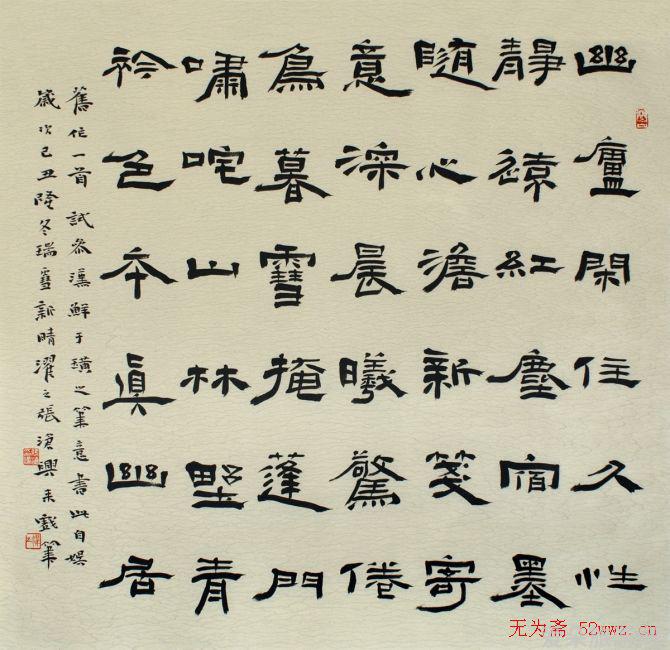 幽廬閑住久性
静遠紅塵宿墨
隨心澹新箋寄
意深晨曦驚倦
鳥暮雪掩蓬門
嘯咤山林野青
衿色本真幽居
舊作一首試參漢鮮于璜之筆意書此自娛
歲次己丑隆冬瑞雪新晴濯之張滄興来戲筆
无为斋 52wwz.cn